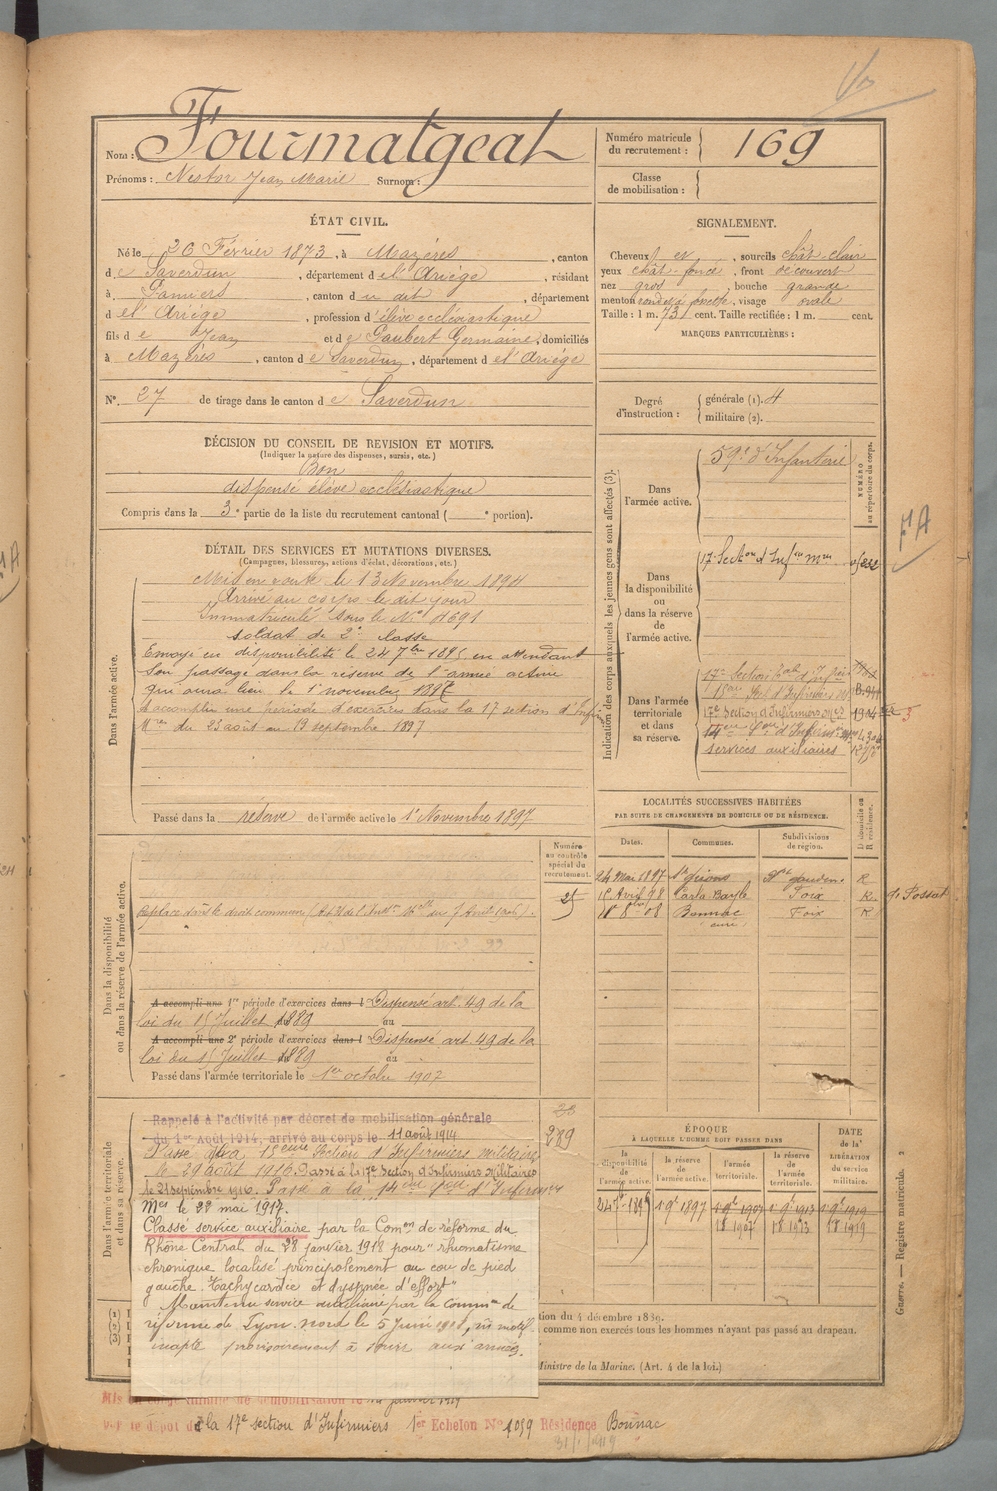 Nom : Fourmatgeat
Prénoms : Nestor Jean Marie Surnom :
Numéro matricule du recrutement : 169
Classe de mobilisation :
ÉTAT CIVIL.
Né le 26 Février 1873, à Mazères, canton
de Saverdun, département de l'Ariège, résidant
à Pamiers, canton du dit, département
de l'Ariège, profession d'élève ecclésiastique
fils de Jean et de Gaubert Germaine, domiciliés
à Mazères, canton de Saverdun, département de l'Ariège
N°. 27 de tirage dans le canton de Saverdun
SIGNALEMENT.
Cheveux et, sourcils chât-clair
yeux chât-foncé, front découvert
nez gros, bouche grande
menton rond et à fossette, visage ovale
Taille : 1 m. 73 cent. Taille rectifiée : 1 m. cent.
MARQUES PARTICULIÈRES :
Degré d'instruction : générale (1). 4
militaire (2).
DÉCISION DU CONSEIL DE REVISION ET MOTIFS.
(Indiquer la nature des dispenses, sursis, etc.)
Bon
dispensé élève ecclésiastique
Compris dans la 3e partie de la liste du recrutement cantonal ( e portion).
DÉTAIL DES SERVICES ET MUTATIONS DIVERSES.
(Campagnes, blessures, actions d'éclat, décorations, etc.)
Dans l'armée active.
Mis en route le 13 Novembre 1894
Arrivé au corps le dit jour
Immatriculé sous le N° 4691
soldat de 2e classe
Envoyé en disponibilité le 24 7bre 1895 en attendant
son passage dans la réserve de l'armée active
qui aura lieu le 1er novembre 1897
A accompli une période d'exercices dans la 17 section d'Infirm
Mres du 23 août au 19 septembre 1897
Passé dans la réserve de l'armée active le 1er Novembre 1897
Indication des corps auxquels les jeunes gens sont affectés (3).
NUMÉRO au répertoire du corps.
Dans l'armée active.
59e d'Infanterie
Dans la disponibilité ou dans la réserve de l'armée active.
17e Section d'Infren Mres
Dans l'armée territoriale et dans sa réserve.
17e Section
17e Section d'Infirmiers Mres
services auxiliaires
FA
LOCALITÉS SUCCESSIVES HABITÉES
PAR SUITE DE CHANGEMENTS DE DOMICILE OU DE RÉSIDENCE.
Dates. Communes. Subdivisions de région. D domicile ou R résidence.
24 Mai 1897 St Girons St Gaudens R
15 Avril 98 Carla Bayle Foix R
8bre 08 Bonnac Foix R
curé
Dans la disponibilité ou dans la réserve de l'armée active.
Numéro au contrôle spécial du recrutement.
25
Replacé dans le droit commun
A accompli une 1re période d'exercices dans l Dispensé art. 49 de la
loi du 15 Juillet 1889 au
A accompli une 2e période d'exercices dans l Dispensé art. 49 de la
loi du 15 Juillet 1889 au
Passé dans l'armée territoriale le 1er octobre 1907
Dans l'armée territoriale et dans sa réserve.
289
Rappelé à l'activité par décret de mobilisation générale
du 1er Août 1914, arrivé au corps le 11 août 1914
Passé à la 15eme Section d'Infirmiers militaires
le 29 août 1916. Passé à la 17e Section d'Infirmiers Militaires
le 21 septembre 1916. Passé à la 14eme Son d'Infirmiers
Mres le 22 mai 1917.
Classé service auxiliaire par la Comon de réforme du
Rhône Central du 28 janvier 1918 pour "rhumatisme
chronique localisé principalement au cou de pied
gauche. Tachycardie et dyspnée d'effort"
Maintenu service auxiliaire par la Common de
réforme de Lyon-Nord le 5 Juin 1918, ms motif
inapte provisoirement à servir aux armées.
ÉPOQUE
À LAQUELLE L'HOMME DOIT PASSER DANS
la disponibilité de l'armée active.
la réserve de l'armée active.
l'armée territoriale.
la réserve de l'armée territoriale.
DATE de la LIBÉRATION du service militaire.
24 7bre 1895 1 9bre 1897 1 9bre 1907 1 9bre 1913 1 9bre 1919
18 1907 18 1913 18 1919
tion du 4 décembre 1889.
comme non exercés tous les hommes n'ayant pas passé au drapeau.
Ministre de la Marine. (Art. 4 de la loi.)
Guerre. — Registre matricule. 2
Mis en congé illimité de démobilisation le janvier 1919
par le dépôt de la 17e section d'Infirmiers 1er Echelon N° 1059 Résidence Bonnac